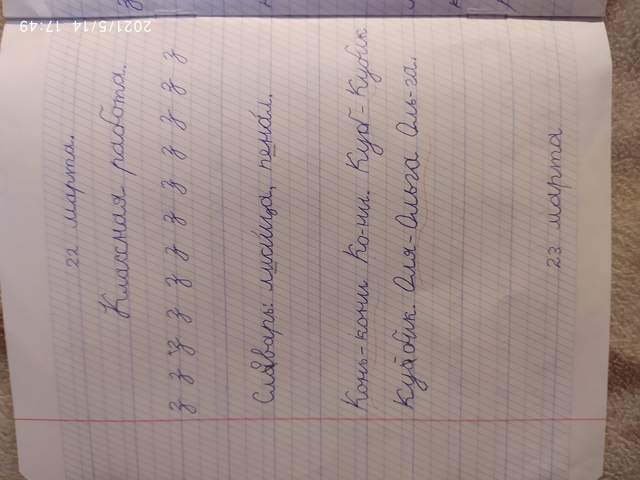 22 марта.
Классная работа.
з з з з з з з з з з з
Словарь: лисица, пенал.
Конь-кони Ко-ни. Куб-Кубик
Ку-бик. Оля-Ольга Оль-га.
23 марта
2021/5/14 17:49